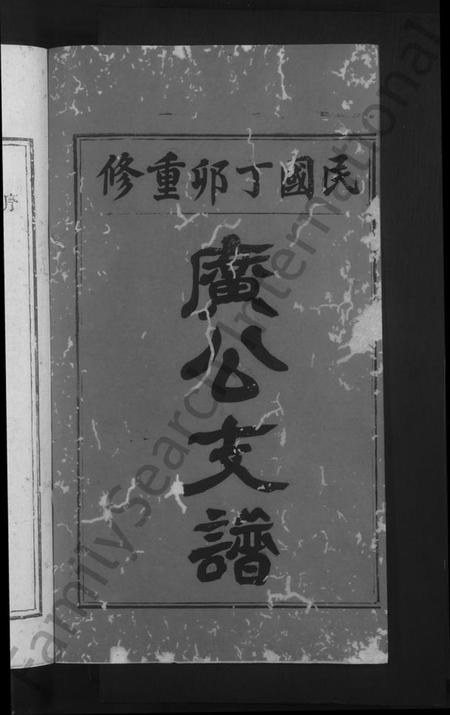 民國丁卯重修
廣公支譜
FamilySearch International